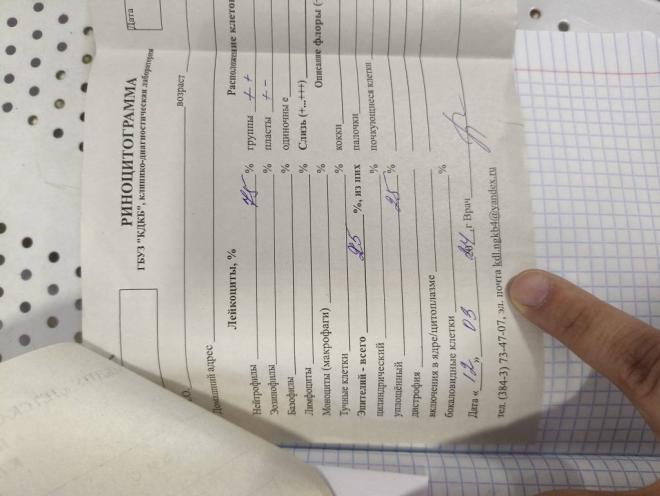 Дата
РИНОЦИТОГРАММА
ГБУЗ "КДКБ", клинико-диагностическая лаборатория
.О. возраст
Домашний адрес
Лейкоциты, % Расположение клеток
Нейтрофилы 75 % группы + +
Эозинофилы % пласты + -
Базофилы % одиночные
Лимфоциты % Слизь (+...+++)
Моноциты (макрофаги) % Описание флоры (
Тучные клетки % кокки
Эпителий - всего 25 %, из них палочки
цилиндрический % почкующиеся клетки
уплощённый 25 %
дистрофия
включения в ядре/цитоплазме
бокаловидные клетки %
Дата « 12 » 03 2024 г Врач
тел. (384-3) 73-47-07, эл. почта kdl.ngkb4@yandex.ru